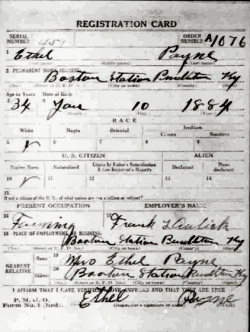 REGISTRATION CARD
SERIAL NUMBER 451 ORDER NUMBER A1676
1 Ethel Payne
2 PERMANENT HOME ADDRESS:
Boston Station Pendleton Ky
Age in Years Date of Birth
34 Jan 10 1884
RACE
White Negro Oriental Indian
Citizen Noncitizen
U. S. CITIZEN ALIEN
Native Born Naturalized Citizen by Father's Naturalization Before Registrant's Majority Declarant Non-declarant
15 If not a citizen of the U. S., of what nation are you a citizen or subject?
PRESENT OCCUPATION EMPLOYER'S NAME
Farming Frank
18 PLACE OF EMPLOYMENT OR BUSINESS:
Boston Station Pendleton Ky
NEAREST RELATIVE
Mrs Ethel Payne
Boston Station Pendleton Ky
I AFFIRM THAT I HAVE VERIFIED ABOVE ANSWERS AND THAT THEY ARE TRUE
P. M. G. O.
Form No. 1 (Red) Ethel Payne